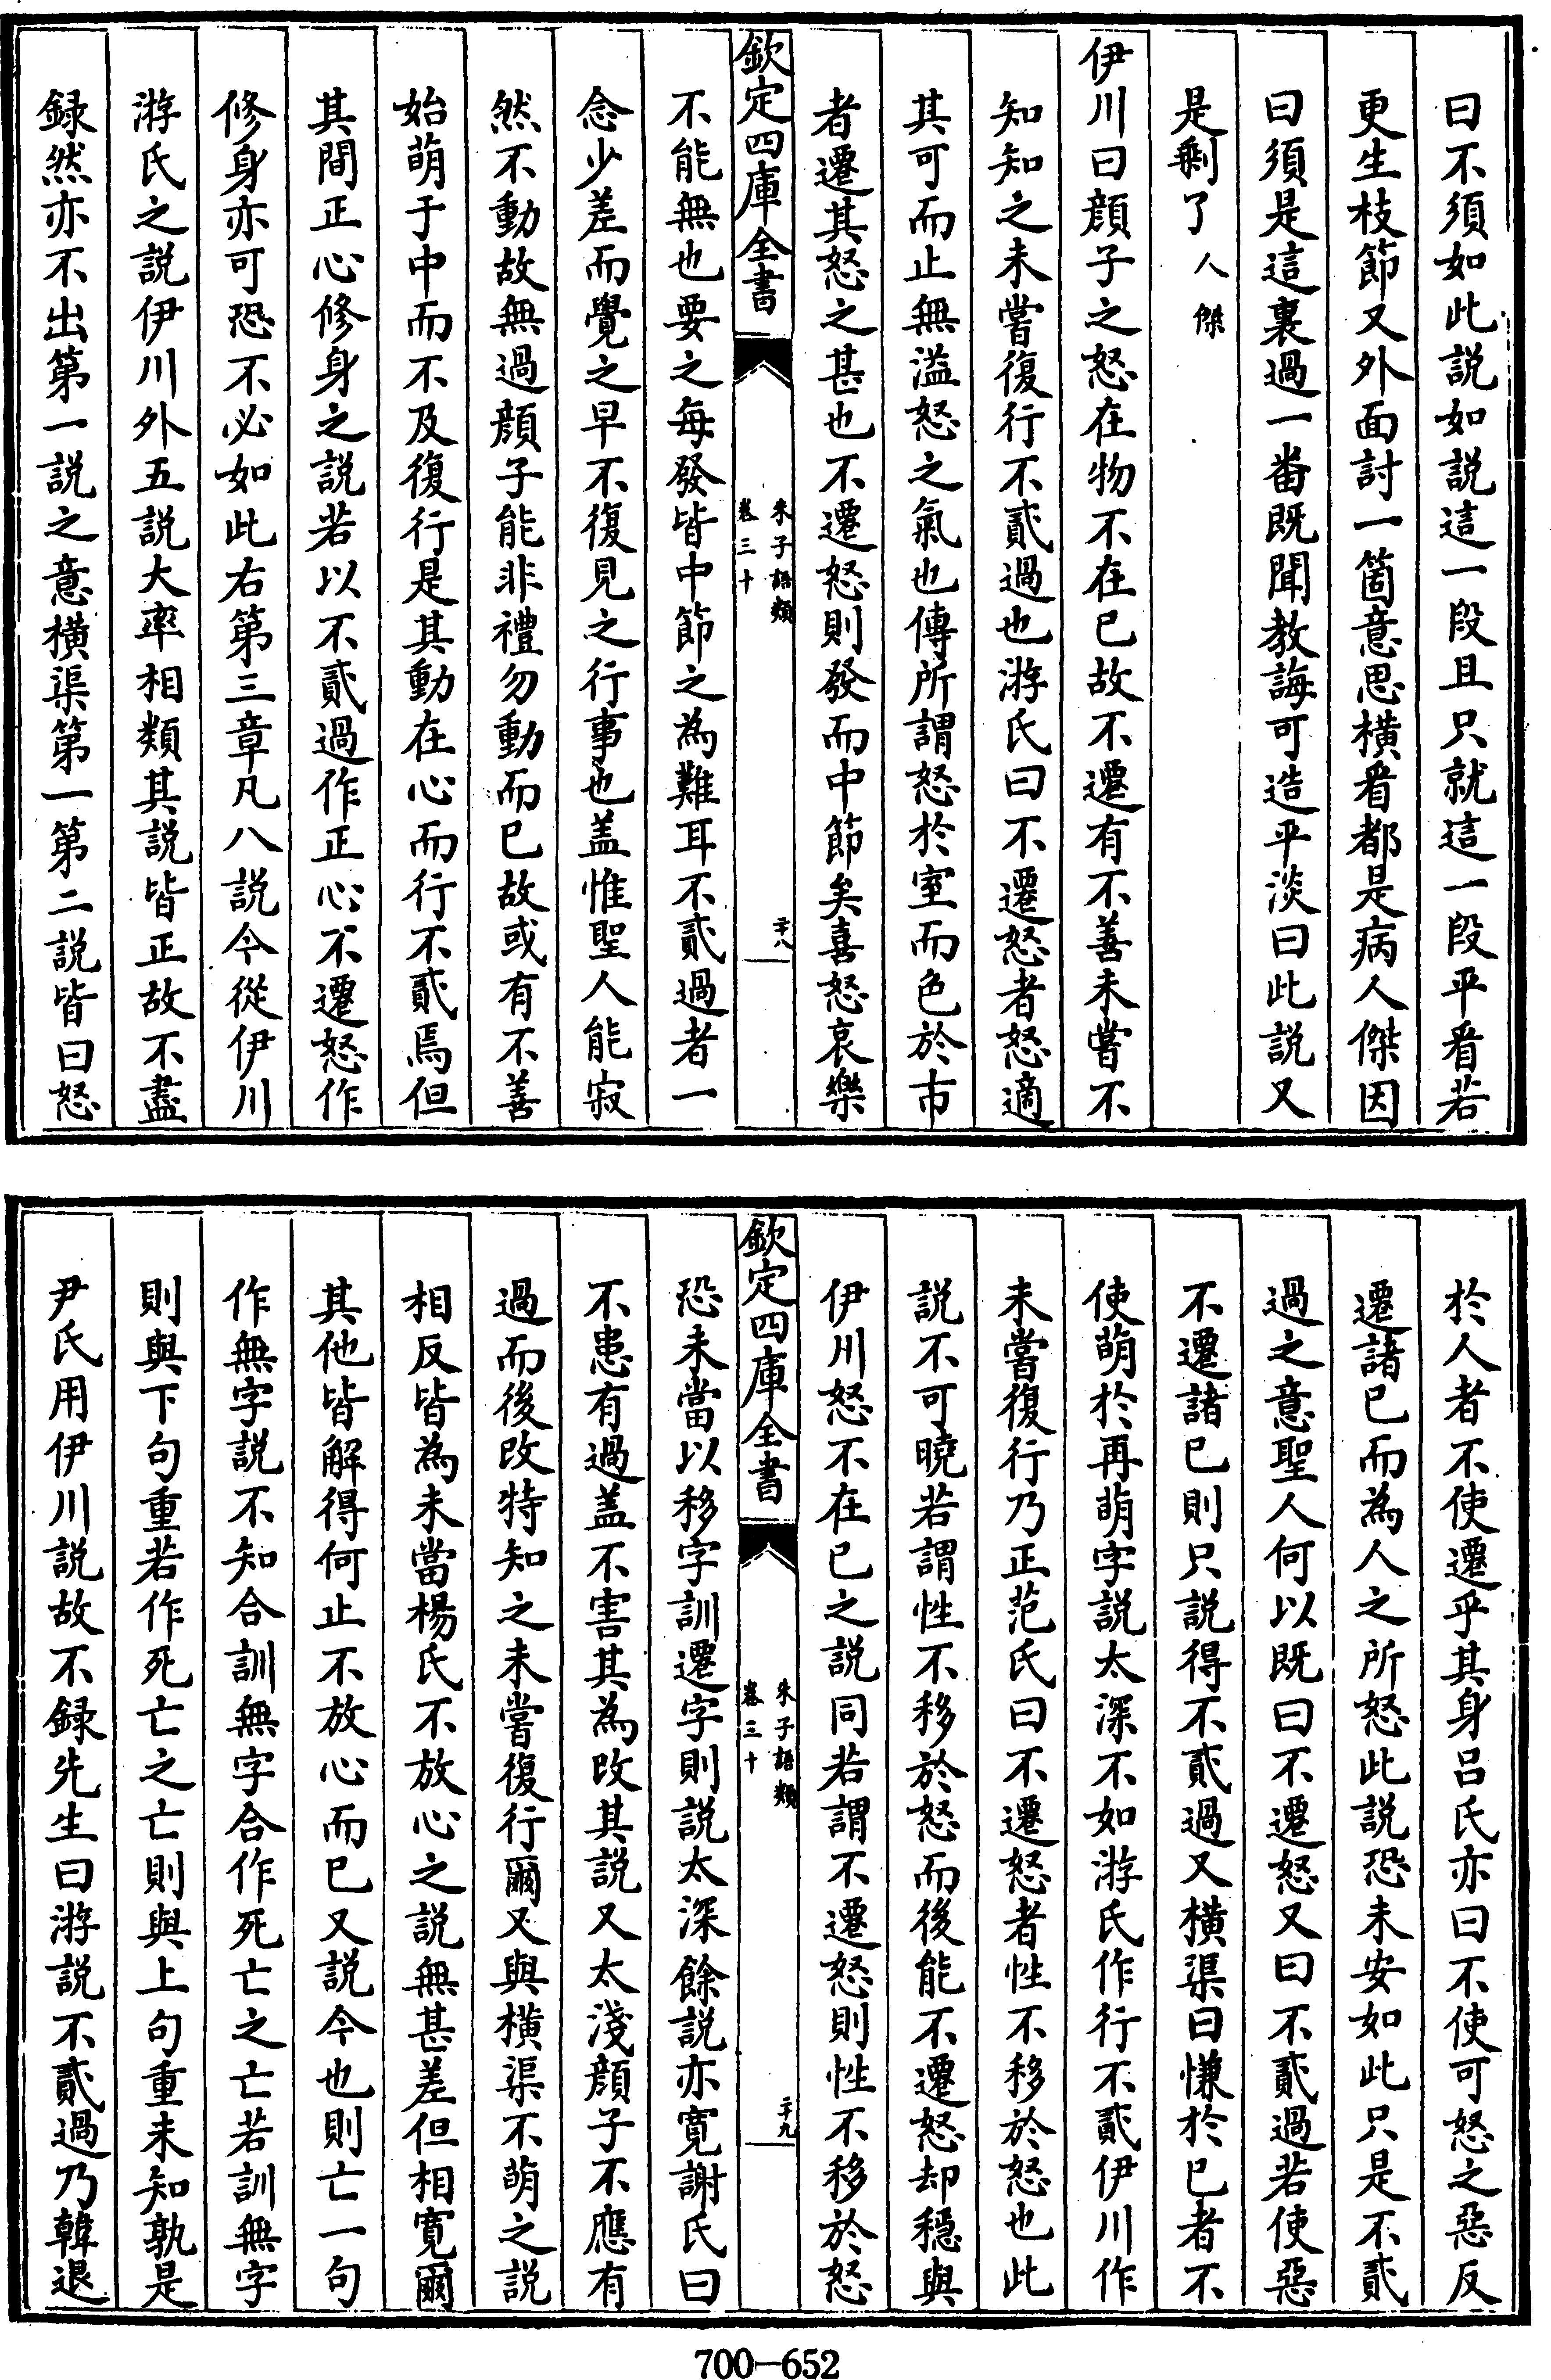 曰不須如此説如説這一段且只就這一段平看若
更生枝節又外面討一箇意思橫看都是病人傑因
曰須是這裏過一番既聞教誨可造平淡曰此説又
是剩了人傑
伊川曰顔子之怒在物不在已故不遷有不善未嘗不
知知之未嘗復行不貳過也游氏曰不遷怒者怒適
其可而止無溢怒之氣也傳所謂怒於室而色於市
者遷其怒之甚也不遷怒則發而中節矣喜怒哀樂
欽定四庫全書
朱子語類
卷三十
二十八
不能無也要之每發皆中節之為難耳不貳過者一
念少差而覺之早不復見之行事也盖惟聖人能寂
然不動故無過顔子能非禮勿動而已故或有不善
始萌于中而不及復行是其動在心而行不貳焉但
其間正心修身之説若以不貳過作正心不遷怒作
修身亦可恐不必如此右第三章凡八説今從伊川
游氏之説伊川外五説大率相類其説皆正故不盡
録然亦不出第一説之意橫渠第一第二説皆曰怒
於人者不使遷乎其身吕氏亦曰不使可怒之惡反
遷諸已而為人之所怒此説恐未安如此只是不貳
過之意聖人何以既曰不遷怒又曰不貳過若使惡
不遷諸已則只説得不貳過又橫渠曰慊於已者不
使萌於再萌字説太深不如游氏作行不貳伊川作
未嘗復行乃正范氏曰不遷怒者性不移於怒也此
説不可曉若謂性不移於怒而後能不遷怒却穩與
伊川怒不在已之説同若謂不遷怒則性不移於怒
欽定四庫全書
朱子語類
卷三十
二十九
恐未當以移字訓遷字則説太深餘説亦寛謝氏曰
不患有過盖不害其為改其説又太淺顔子不應有
過而後改特知之未嘗復行爾又與橫渠不萌之説
相反皆為未當楊氏不放心之説無甚差但相寛爾
其他皆解得何止不放心而已又説今也則亡一句
作無字説不知合訓無字合作死亡之亡若訓無字
則與下句重若作死亡之亡則與上句重未知孰是
尹氏用伊川説故不録先生曰游説不貳過乃韓退
700-652